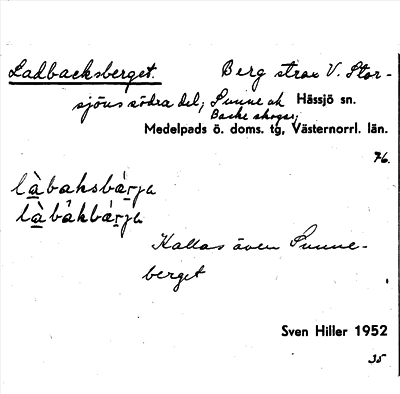 Ladbacksberget. Berg strax V. Stor-
sjöns södra del, Sunne ok Hässjö sn.
Backe skogar,
Medelpads ö. doms. tg, Västernorrl. län.
76.
là̱baksbá̱rja
là̱båkbá̱rja
Kallas även Sunne-
berget
Sven Hiller 1952
35